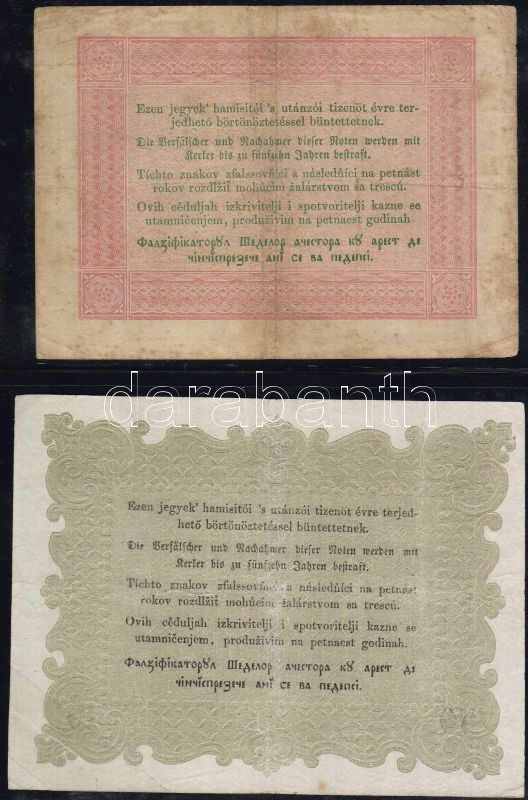 Ezen jegyek' hamisitói 's utánzói tizenöt évre ter-
jedhető börtönöztetéssel büntettetnek.
Die Verfälscher und Nachahmer dieser Noten werden mit
Kerker bis zu fünfzehn Jahren bestraft.
Tíchto znakov zfalssovňíci a následňíci na petnást
rokov rozdlžiť mohúcim žalárstvom sa trescú.
Ovih cěduljah izkrivitelji i spotvoritelji kazne se
utamničenjem, produživim na petnaest godinah.
Фалзіфікаторꙋл Шеделор ачестора кꙋ арест де
чінчіспрезече анї се ва педепсі.
darabanth
Ezen jegyek' hamisitói 's utánzói tizenöt évre terjed-
hető börtönöztetéssel büntettetnek.
Die Verfälscher und Nachahmer dieser Noten werden mit
Kerker bis zu fünfzehn Jahren bestraft.
Tíchto znakov zfalssovňíci a následňíci na petnást
rokov rozdlžiť mohúcim žalárstvom sa trescú.
Ovih cěduljah izkrivitelji i spotvoritelji kazne se
utamničenjem, produživim na petnaest godinah.
Фалзіфікаторꙋл Шеделор ачестора кꙋ арест де
чінчіспрезече анї се ва педепсі.